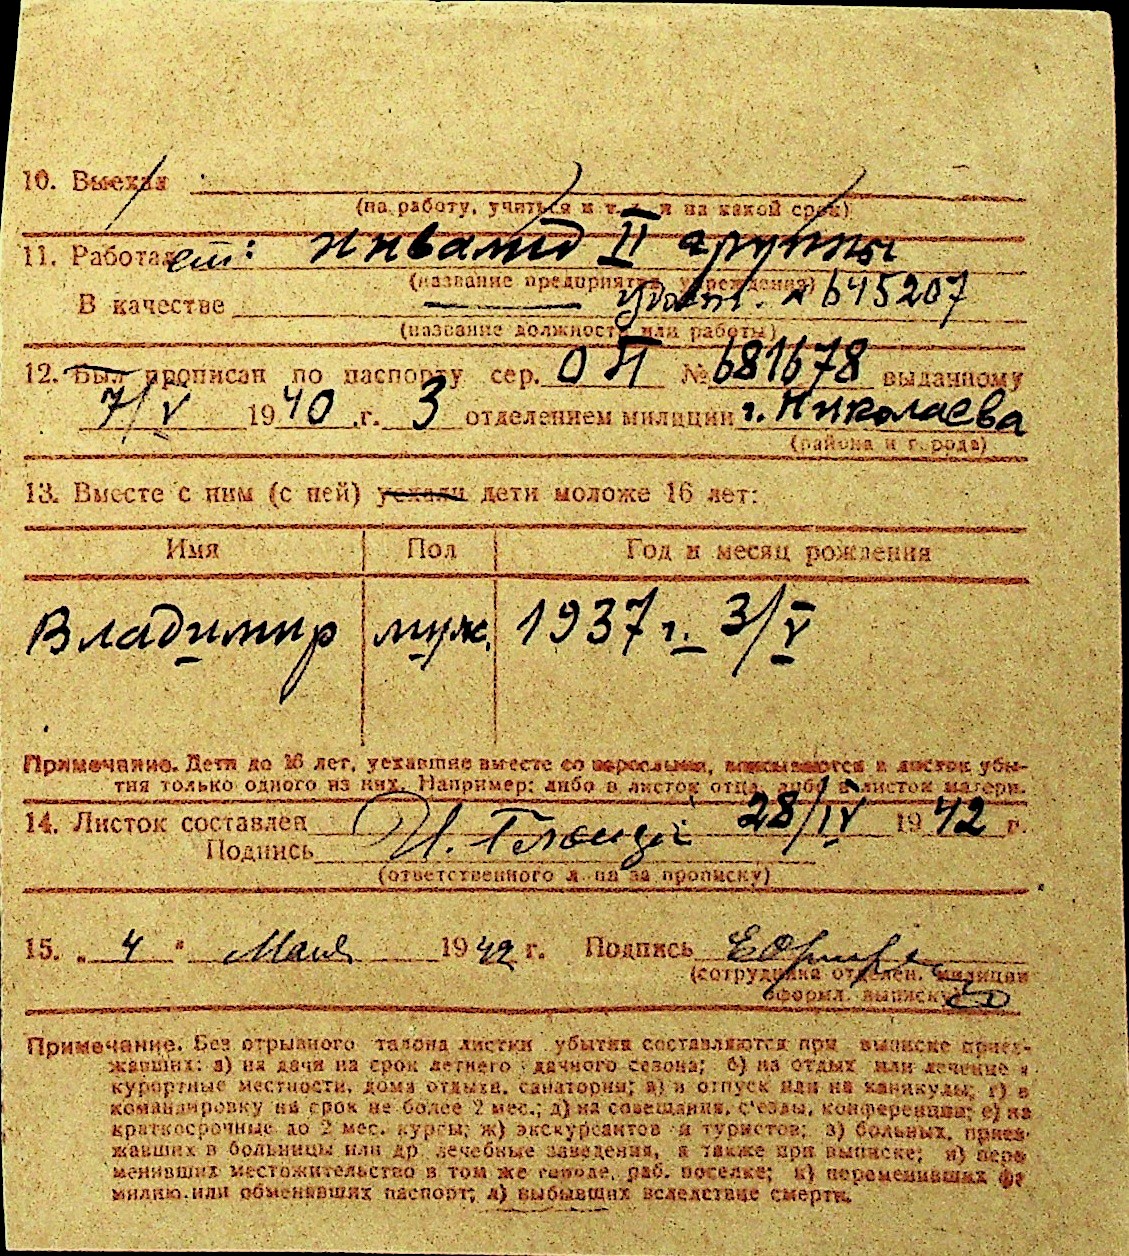 10. Выехал
(на работу, учиться и т. д. и на какой срок)
11. Работает: инвалид II группы
(название предприятия, учреждения)
удост. № 645207
В качестве
(название должности или работы)
12. Был прописан по паспорту сер. ОП № 681678 выданному
7/V 1940 г. 3 отделением милиции г. Николаева
(района и города)
13. Вместе с ним (с ней) уехали дети моложе 16 лет:
Имя Пол Год и месяц рождения
Владимир муж. 1937 г. 3/V
Примечание. Дети до 16 лет, уехавшие вместе со взрослыми, вписываются в листок убы-
тия только одного из них. Например: либо в листок отца, либо в листок матери.
14. Листок составлен 28/IV 1942 г.
Подпись
(ответственного лица за прописку)
15. „ 4 " Мая 1942 г. Подпись
(сотрудника отделен. милиции
оформл. выписку)
Примечание. Без отрывного талона листки убытия составляются при выписке приез-
жавших: а) на дачи на срок летнего дачного сезона; б) на отдых или лечение в
курортные местности, дома отдыха, санатории; в) в отпуск или на каникулы; г) в
командировку на срок не более 2 мес.; д) на совещания, с'езды, конференции; е) на
краткосрочные до 2 мес. курсы; ж) экскурсантов и туристов; з) больных, приез-
жавших в больницы или др. лечебные заведения, а также при выписке; и) пере
менивших местожительство в том же городе, раб. поселке; к) переменивших фа
милию или обменявших паспорт; л) выбывших вследствие смерти.